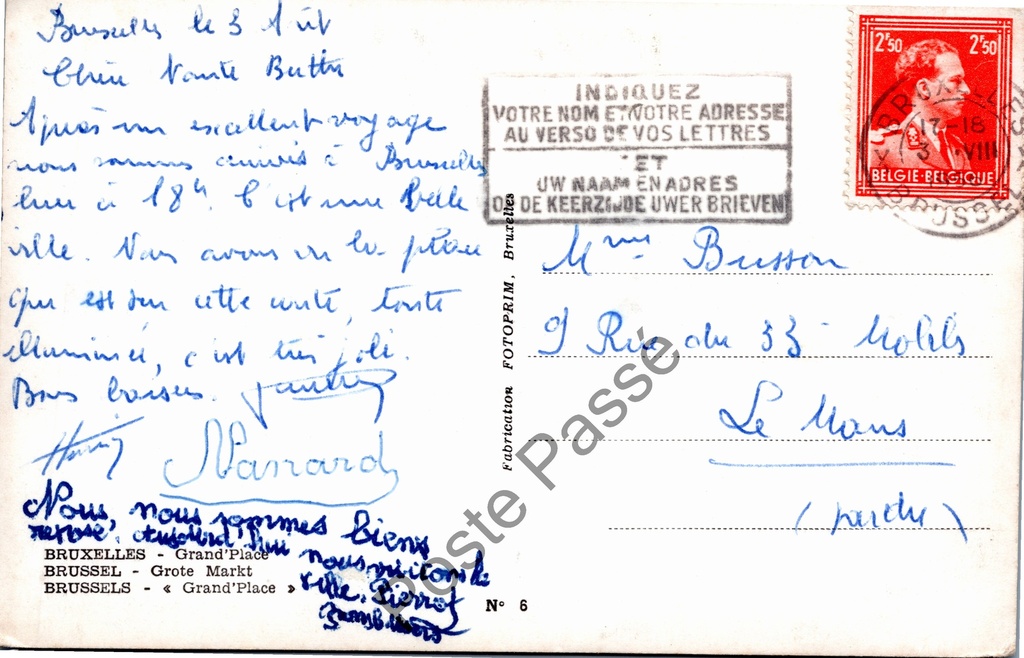 Bruxelles le 3 Aût
Chère Tante Berthe
Après un excellent voyage
nous sommes arrivés à Bruxelles
hier à 18h. C'est une Belle
ville. Nous avons vu la place
qui est sur cette carte, toute
illuminée, c'est très joli.
Bons baisers.
Nanard
Nous, nous sommes biens
reposé. Aujourd'hui nous visitons la
ville. Pierrot
BRUXELLES - Grand'Place
BRUSSEL - Grote Markt
BRUSSELS - « Grand'Place »
N° 6
Fabrication FOTOPRIM, Bruxelles
INDIQUEZ
VOTRE NOM ET VOTRE ADRESSE
AU VERSO DE VOS LETTRES
ET
UW NAAM EN ADRES
OP DE KEERZIJDE UWER BRIEVEN
2F50 2F50
BELGIE-BELGIQUE
BRUXELLES
17-18
3 VIII
BRUSSEL
Mme Busson
9 Rue du 33 Mobils
Le Mans
(Sarthe)
Poste Passé